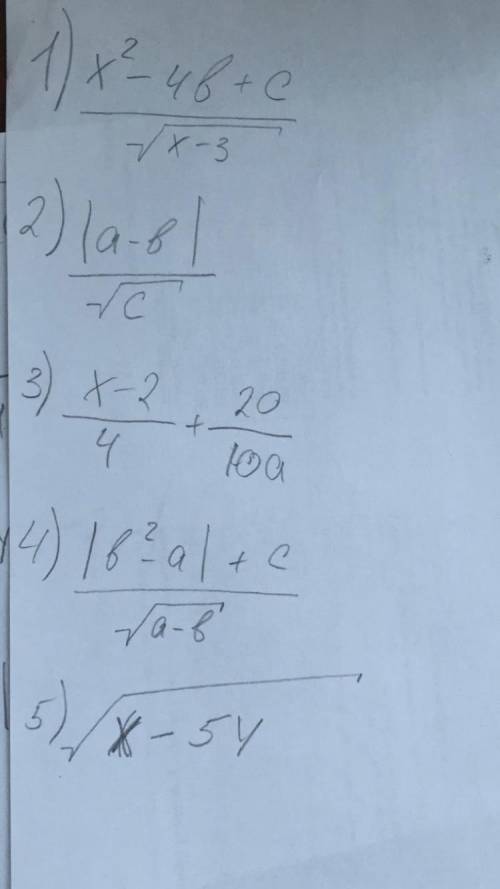 1) x² - 4в + c
√x-3
2) |a-в|
√c
3) x-2 / 4 + 20 / 10a
4) |в²-a| + c
√a-в
5) √x - 5y